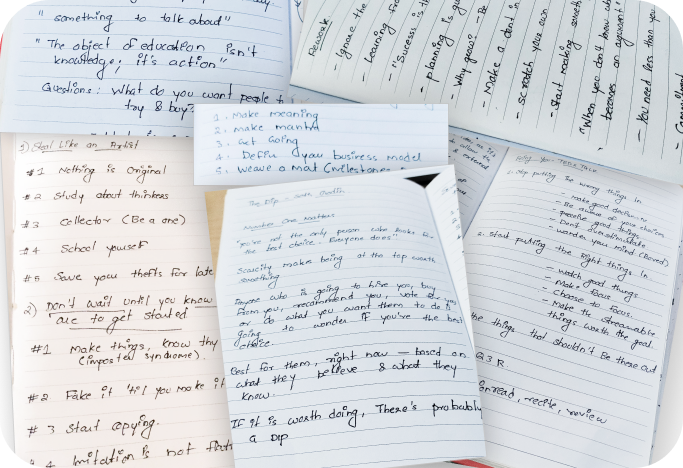 "something to talk about"
"The object of education isn't
knowledge; it's action"
Questions: What do you want people to
try & buy?
Rework
- Ignore the
- Learning from
- "Success is the
- planning is gu
- Why grow?
- Make a dent in
- scratch your own
- Start making someth
"When you don't know wh
becomes an argument"
- You need less than you
1. Make meaning
2. make mantra
3. Get Going
4. Define your business model
5. Weave a Mat (milestones
1) Steal Like an Artist
#1 Nothing is Original
#2 Study about thinkers
#3 Collector (Be a one)
#4 School youself
#5 Save your thefts for late
2) Don't wait until you know
are to get started
#1 Make things, know thy
(imposter syndrome).
#2 Fake it 'til you make it
#3 Start copying.
#4 Imitation is not flatt
The Dip - Seth Godin
Number One Matters
"you're not the only person who looks for
the best choice. Everyone does"
Scarcity makes being at the top worth
something
Anyone who is going to hire you, buy
from you, recommend you, vote for you
or do what you want them to do is
going to wonder if you're the best
choice.
Best for them, right now — based on
what they believe & what they
know.
If it is worth doing, There's probably
a DIP
1. stop putting the wrong things in
- make good decision
- Be aware of your choices
- perceive good things
- Don't overestimate
- wander you mind (Bored)
2. start putting the right things In
- watch good things
- Make focus
- choose to focus.
- Make the
things worth the goal.
the things that shouldn't Be there out
Q3R
read, recite, review